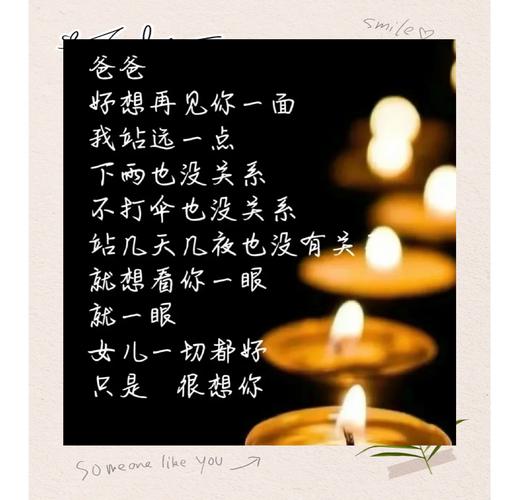 smile
爸爸
好想再见你一面
我站远一点
下雨也没关系
不打伞也没关系
站几天几夜也没有关
就想看你一眼
就一眼
女儿一切都好
只是 很想你
Someone like you